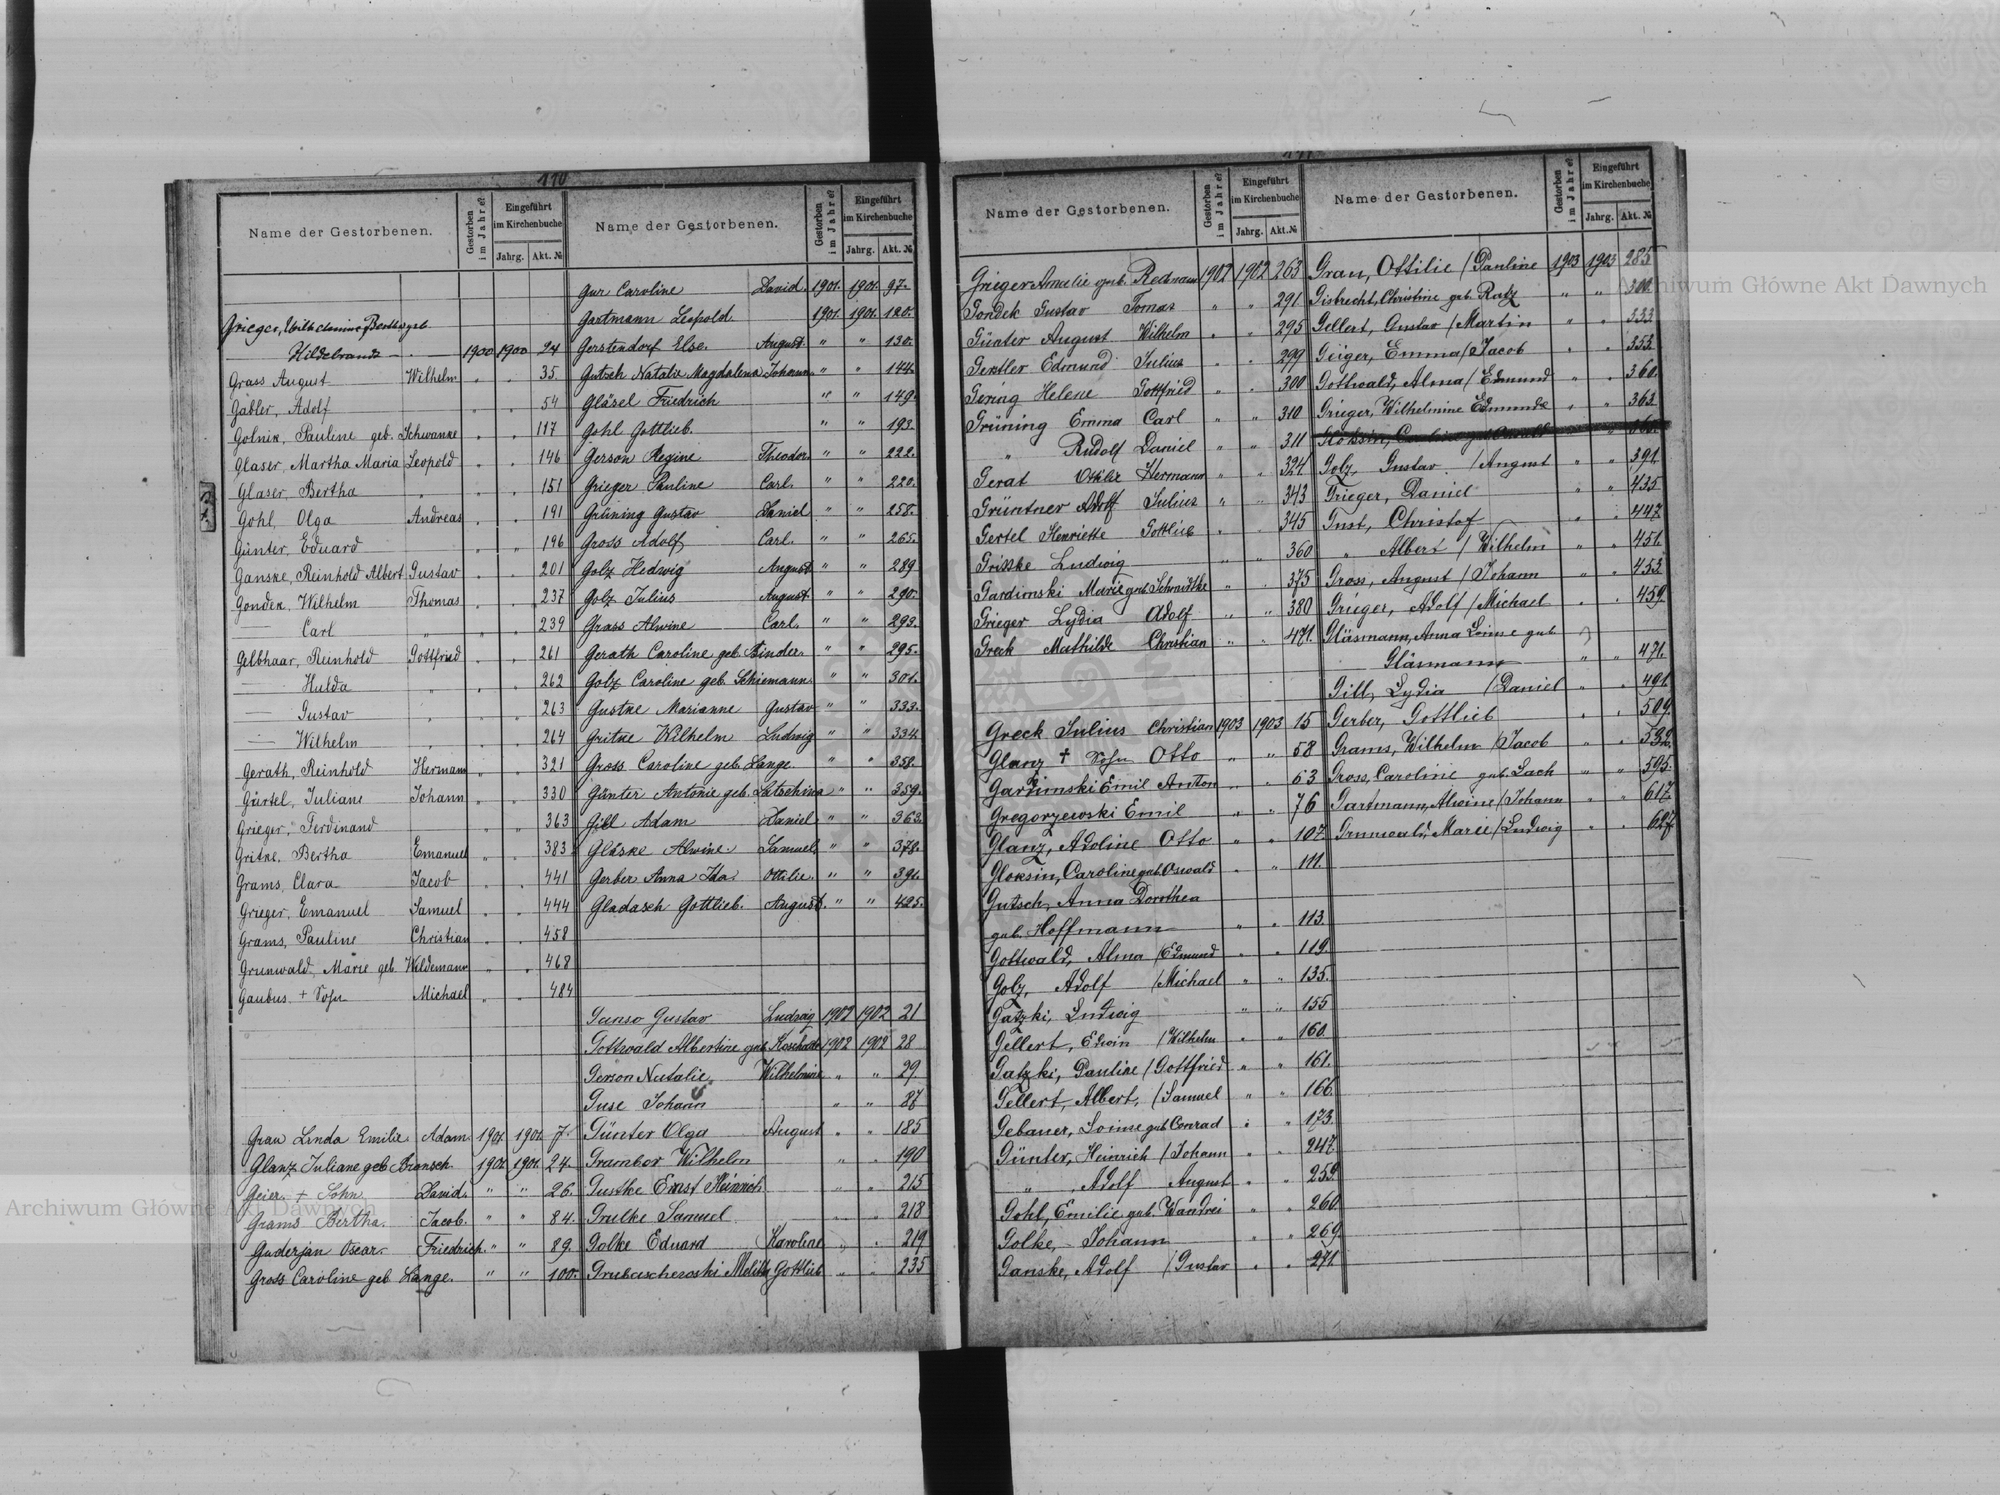 110
Name der Gestorbenen.
Gestorben im Jahre?
Eingeführt im Kirchenbuche
Jahrg.
Akt. №
Grieger, Wilhelmine Bertha geb.
Hildebrandt 1900 1900 24
Grass August Wilhelm " " 35
Gäbler, Adolf " " 54
Golnik, Pauline geb. Schwanke " " 117
Glaser, Martha Maria Leopold " " 146
Glaser, Bertha " " " 151
Gohl, Olga Andreas " " 191
Günter, Eduard " " 196
Ganske, Reinhold Albert Gustav " " 201
Gondek, Wilhelm Thomas " " 237
— Carl " " " 239
Gelbhaar, Reinhold Gottfried " " 261
— Hulda " " " 262
— Gustav " " " 263
— Wilhelm " " " 264
Gerath, Reinhold Hermann " " 321
Gürtel, Juliane Johann " " 330
Grieger, Ferdinand " " 363
Gritke, Bertha Emanuel " " 383
Grams, Clara Jacob " " 441
Grieger, Emanuel Samuel " " 444
Grams, Pauline Christian " " 458
Grunwald, Marie geb. Wildemann " " 468
Gaubus + Sohn Michael " " 484
Grau Linda Emilie Adam 1901. 1901. 7.
Glanz Juliane geb. Bransch 1901. 1901. 24.
Geier + Sohn David. " " 26.
Grams Bertha. Jacob. " " 84.
Guderjan Oscar. Friedrich. " " 89.
Gross Caroline geb. Lange. " " 100.
Name der Gestorbenen.
Gestorben im Jahre?
Eingeführt im Kirchenbuche
Jahrg.
Akt. №
Gur Caroline David. 1901. 1901. 97.
Gartmann Leopold. 1901. 1901. 120.
Gerstendorf Else. August. " " 130.
Gutsch Natalie Magdalena Johann " " 144.
Gläsel Friedrich " " 149.
Gohl Gottlieb. " " 193.
Gerson Regine Theodor. " " 222.
Grieger Pauline Carl. " " 220.
Grüning Gustav Daniel " " 258.
Gross Adolf Carl. " " 265.
Golz Hedwig August " " 289
Golz Julius August " " 290.
Grass Alwine Carl. " " 293.
Gerath Caroline geb. Binder. " " 295.
Golz Caroline geb. Schiemann. " " 301.
Gustke Marianne Gustav " " 333.
Gritke Wilhelm Ludwig " " 334.
Gross Caroline geb. Lange. " " 358.
Günter Antonie geb. Latschina " " 359.
Gill Adam Daniel " " 363.
Gläske Alwine. Samuel. " " 378.
Gerber Anna Ida. Ottilie. " " 391.
Gladasch Gottlieb. August. " " 425.
Gustav Ludwig 1902 1902 21
Gottwald Albertine geb. 1902 1902 28
Gerson Natalie. Wilhelmine " " 29
Guse Johann " " 87
Günter Olga August " " 185
Grambor Wilhelm " " 190
Gustke Ernst Heinrich " " 215
Grulke Samuel " " 218
Golke Eduard Karoline " " 219
Gottlieb " " 235
111
Name der Gestorbenen.
Gestorben im Jahre?
Eingeführt im Kirchenbuche
Jahrg.
Akt. №
Grieger Amalie geb. 1902 1902 263
Gondek Gustav Tomas " " 291
Günter August Wilhelm " " 295
Gertler Edmund Julius " " 299
Gering Helene Gottfried " " 300
Grüning Emma Carl " " 310
" Rudolf Daniel " " 311
Gerat Ottilie Hermann " " 324
Grüntner Adolf Julius " " 343
Gertel Henriette Gottlieb " " 345
Ludwig " " 360
Gardimski Marie geb. Schmidtke " " 375
Grieger Lydia Adolf " " 380
Greck Mathilde Christian " " 471.
Greck Julius Christian 1903 1903 15
Glanz + Sohn Otto " " 58
Gardimski Emil Anton " " 63
Gregorzewski Emil " " 76
Glanz, Adoline Otto " " 107.
Gloksin, Caroline geb. Oswald " " 111.
Gutsch, Anna Dorothea
geb. Hoffmann " " 113.
Gottwald, Alma /Edmund " " 119.
Golz, Adolf /Michael " " 135.
Gatzki, Ludwig " " 155
Gellert, Edwin /Wilhelm " " 160.
Gatzki, Pauline /Gottfried " " 161.
Gellert, Albert, /Samuel " " 166.
Gebauer, Louise geb. Conrad " " 173.
Günter, Heinrich /Johann " " 247.
" Adolf August " " 259.
Gohl, Emilie geb. Wandrei " " 260.
Golke, Johann " " 269.
Ganske, Adolf /Gustav " " 271.
Name der Gestorbenen.
Gestorben im Jahre?
Eingeführt im Kirchenbuche
Jahrg.
Akt. №
Grau, Ottilie /Pauline 1903 1903 285
Gisbrecht, Christine geb. Ratz " " 300.
Gellert, Gustav /Martin " " 333
Geiger, Emma /Jacob " " 353.
Gottwald, Alma /Edmund " " 360.
Grieger, Wilhelmine Edmund " " 363.
Gloksin, Caroline geb. Oswald
Golz, Gustav /August " " 391.
Grieger, Daniel " " 435
Gust, Christof " " 447.
" Albert /Wilhelm " " 451.
Gross, August /Johann " " 453.
Grieger, Adolf /Michael " " 459.
Gläsmann, Anna Louise geb.
Gläsmann " " 471.
Gill, Lydia /Daniel " " 491.
Gerber, Gottlieb " " 509.
Grams, Wilhelm /Jacob " " 532.
Gross, Caroline geb. Lach " " 595.
Gartmann, Alwine /Johann " " 617.
Grunwald, Marie /Ludwig " " 627.
Archiwum Główne Akt Dawnych
Archiwum Główne Akt Dawnych